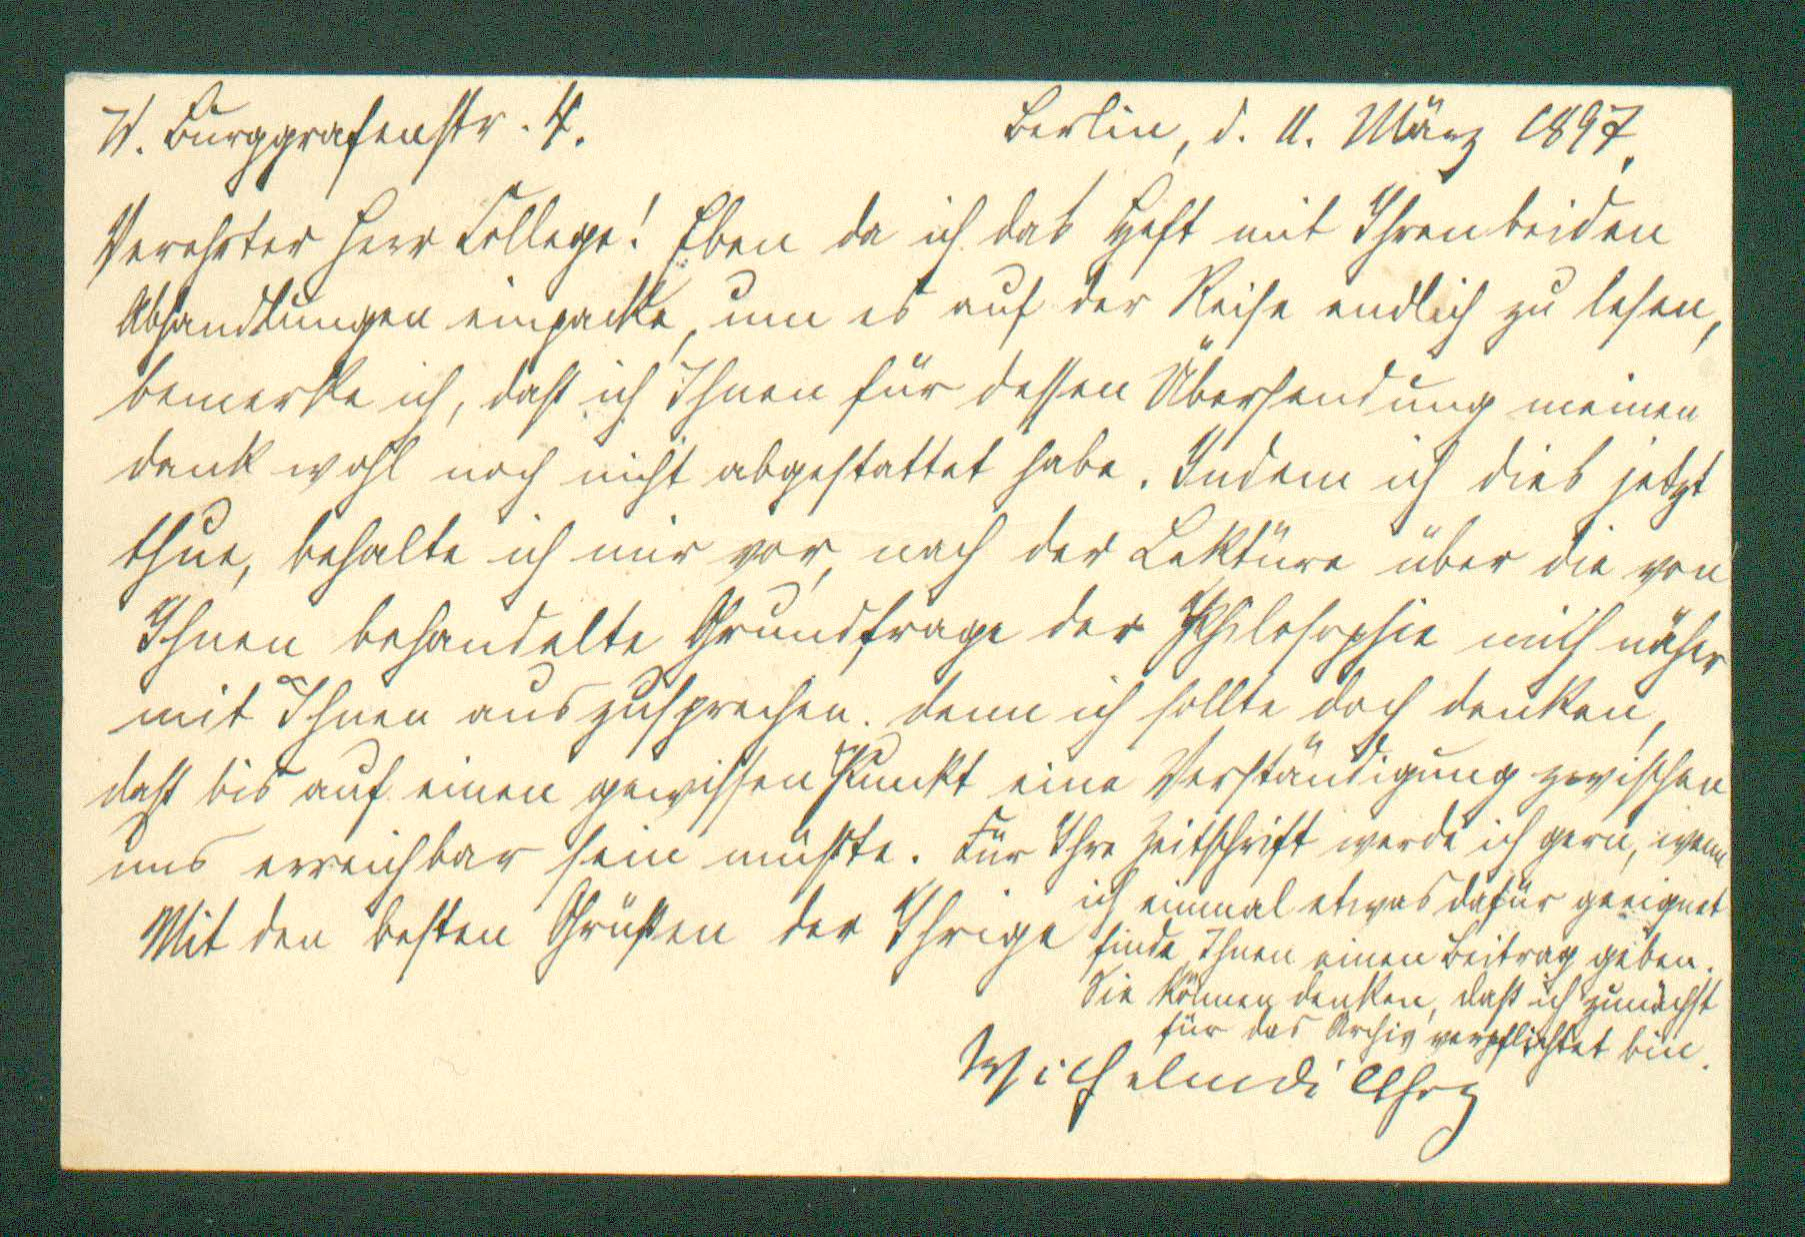 W. Burggrafenstr. 4.
Berlin, d. 11. März 1897.
Verehrter Herr College! Eben da ich das Heft mit Ihren beiden
Abhandlungen einpacke, um es auf der Reise endlich zu lesen,
bemerke ich, daß ich Ihnen für dessen Übersendung meinen
Dank wohl noch nicht abgestattet habe. Indem ich dies jetzt
thue, behalte ich mir vor, nach der Lektüre über die von
Ihnen behandelte Grundfrage der Philosophie mich näher
mit Ihnen auszusprechen. Denn ich sollte doch denken,
daß bis auf einen gewissen Punkt eine Verständigung zwischen
uns erreichbar sein müßte. Für Ihre Zeitschrift werde ich gern, wenn
ich einmal etwas dafür geeignet
finde, Ihnen einen Beitrag geben.
Sie können denken, daß ich zunächst
für das Archiv verpflichtet bin.
Mit den besten Grüßen der Ihrige
Wilhelm Dilthey